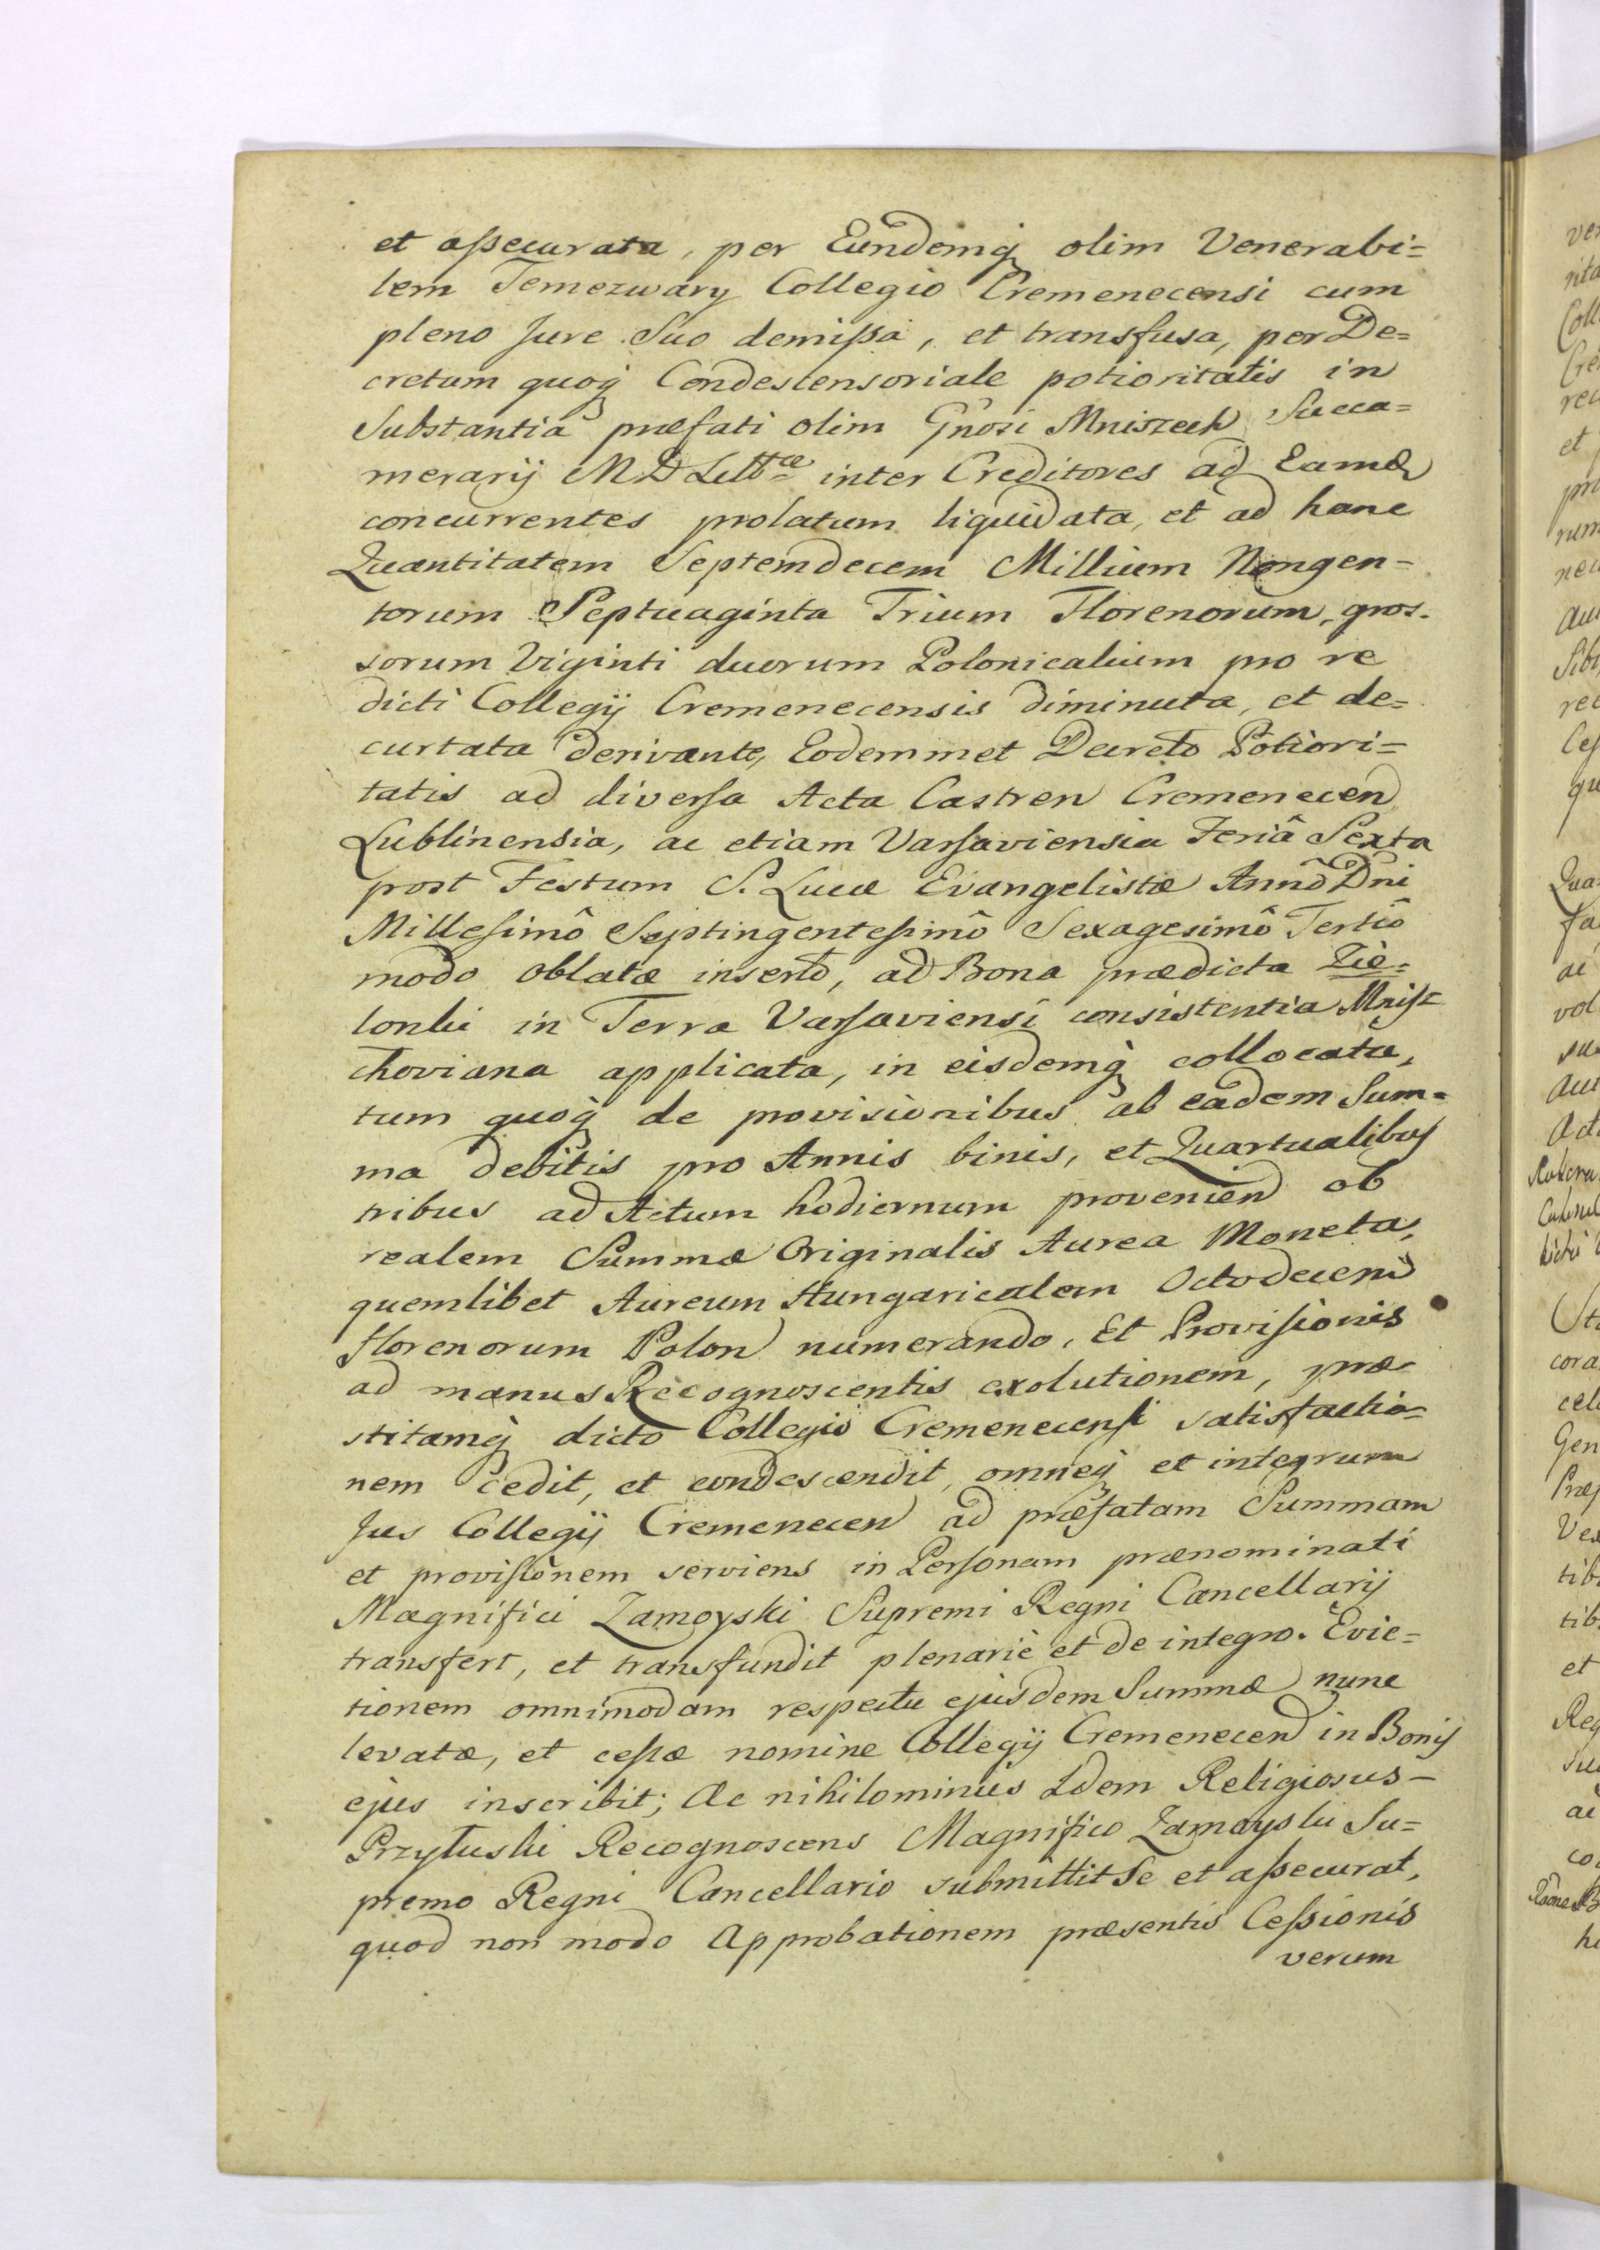 et assecurata, per Eundemq̃ olim Venerabi=
lem Temezwary Collegio Cremenecensi cum
pleno Jure Suo demissa, et transfusa, per De=
cretum quoq̃ Condescensoriale potioritatis in
Substantia præfati olim Gnosi Mniszech Succa=
merarij M D Littᵃᵉ inter Creditores ad Eamd
concurrentes prolatum liquidata, et ad hanc
Quantitatem Septemdecem Millium Nongen-
torum Septuaginta Trium Florenorum, gros-
sorum Viginti duorum Polonicalium pro re
dicti Collegij Cremenecensis diminuta, et de=
curtata derivante, Eodemmet Decreto Potiori=
tatis ad diversa Acta Castren Cremenecen
Lublinensia, ac etiam Varsaviensia Feriâ Sexta
post Festum S. Lucæ Evangelistæ Annô Dni
Millesimô Septingentesimô Sexagesimô Tertiô
modo oblatæ inserto, ad Bona prædicta Zie=
lonki in Terra Varsaviensi consistentia Mnisz
choviana applicata, in eisdemq̃ collocata,
tum quoq̃ de provisionibus ab eadem Sum=
ma debitis pro Annis binis, et Quartualibus
tribus ad Actum hodiernum provenien ob
realem Summæ Originalis Aurea Moneta,
quemlibet Aureum Hungaricalem Octodecem
florenorum Polon numerando, Et Provisionis
ad manus Recognoscentis exolutionem, præ
stitamq̃ dicto Collegio Cremenecensi satisfactio=
nem cedit, et condescendit, omneq̃ et integrum
Jus Collegij Cremenecen ad præfatam Summam
et provisionem serviens in Personam prænominati
Magnifici Zamoyski Supremi Regni Cancellarij
transfert, et transfundit plenariè et de integro. Evic=
tionem omnimodam respectu ejusdem Summæ nunc
levatæ, et cessæ nomine Collegij Cremenecen in Bonis
ejus inscribit; Ac nihilominus Idem Religiosus-
Przyłuski Recognoscens Magnifico Zamoyski Su=
premo Regni Cancellario submittit Se et assecurat,
quod non modo Approbationem præsentis Cessionis
verum